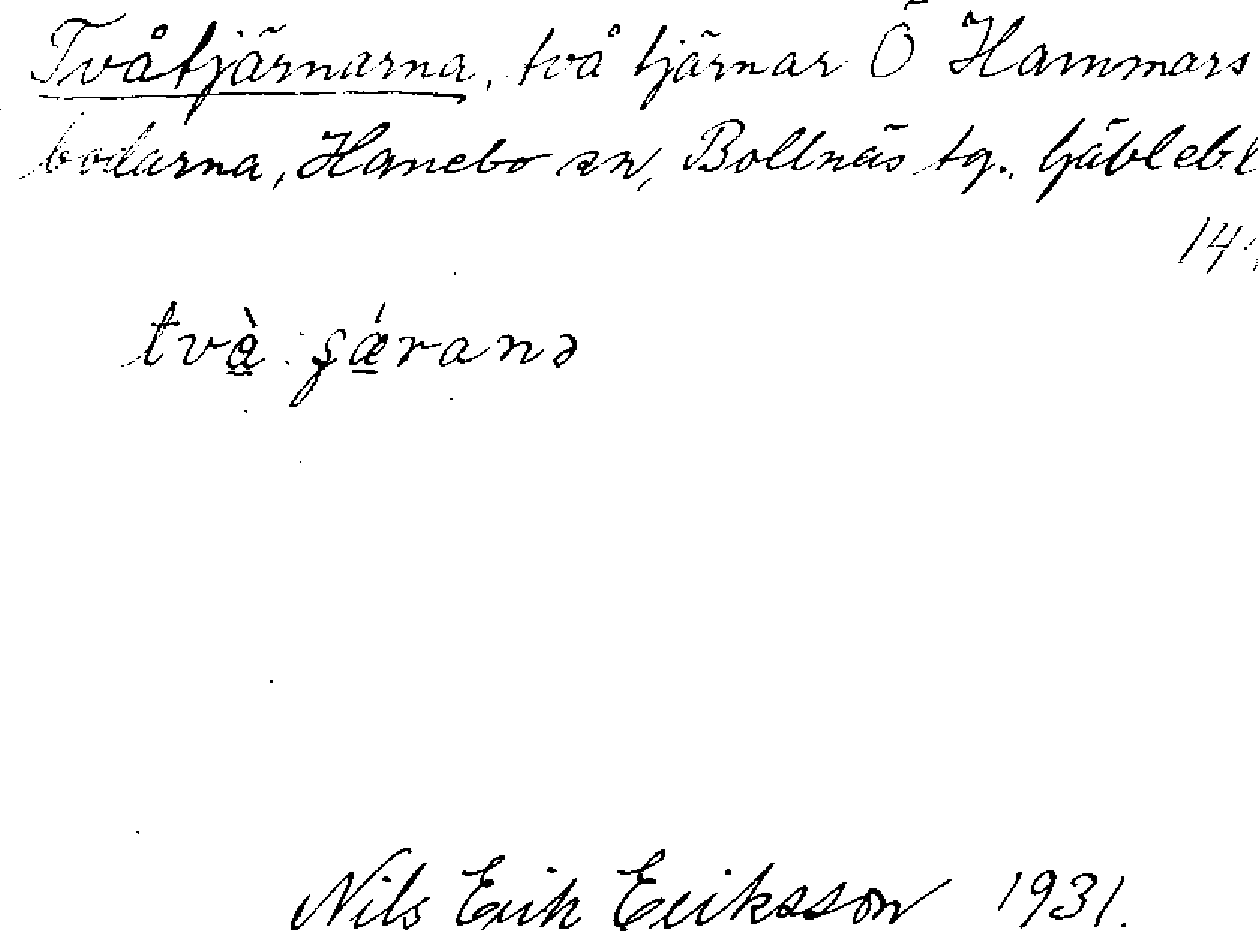 Tvåtjärnarna, två tjärnar Ö Hammars
bodarna, Hanebo sn, Bollnäs tg. Gävlebl
14
Nils Erik Eriksson 1931.